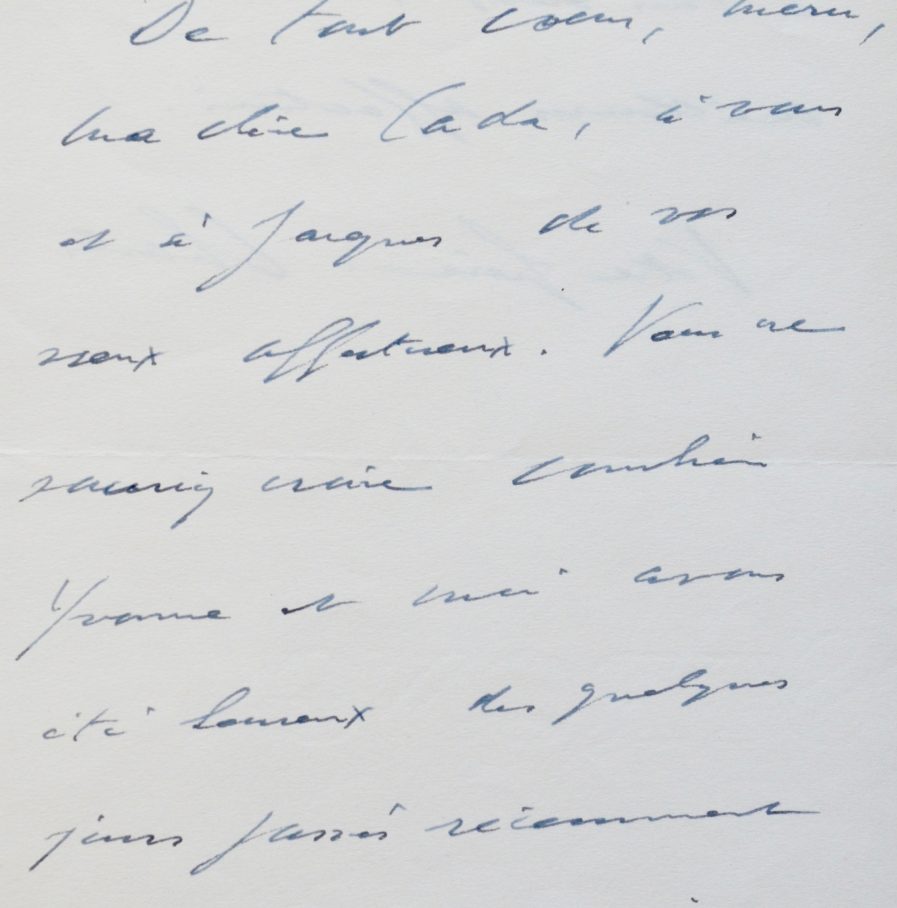 De tout cœur, merci,
ma chère Cada, à vous
et à Jacques de vos
vœux affectueux. Vous ne
sauriez croire combien
Yvonne et moi avons
été heureux des quelques
jours passés récemment